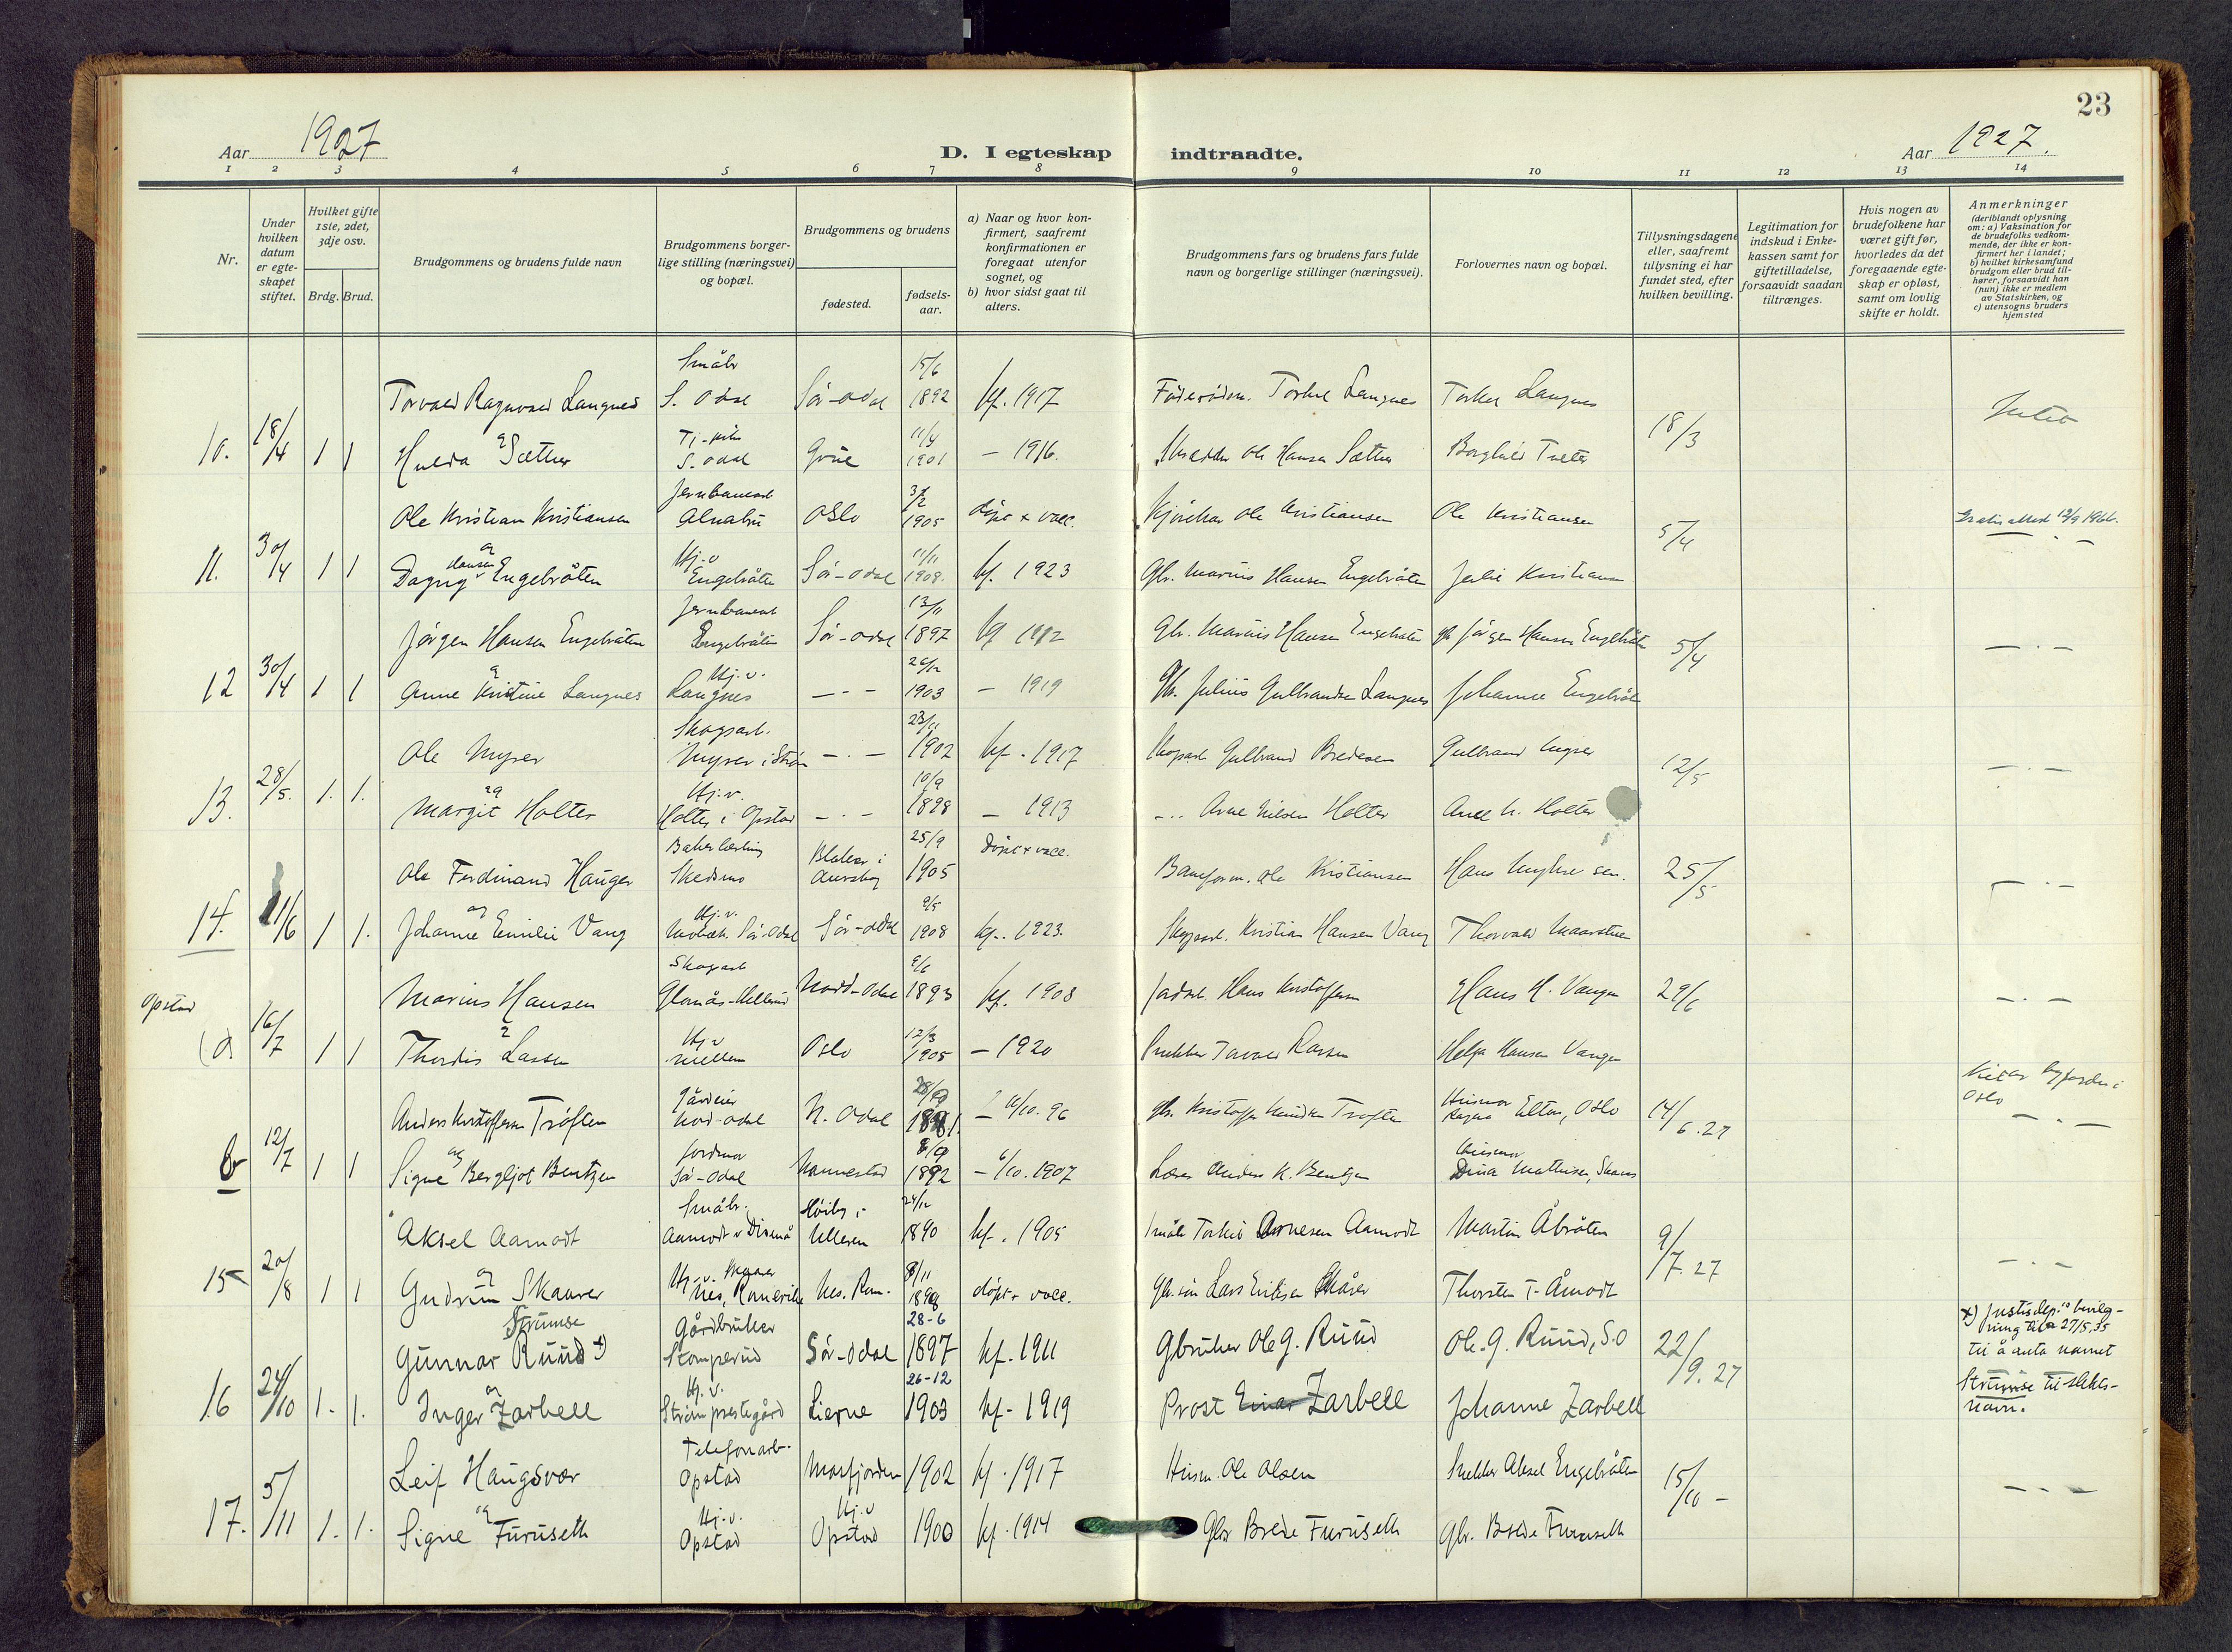 23
Aar 1927
D. I egteskap indtraadte.
Aar 1927.
1 2 3 4 5 6 7 8 9 10 11 12 13 14
Nr.
Under hvilken datum er egteskapet stiftet.
Hvilket gifte 1ste, 2det, 3dje osv.
Brdg. Brud.
Brudgommens og brudens fulde navn
Brudgommens borgerlige stilling (næringsvei) og bopæl.
Brudgommens og brudens
fødested.
fødselsaar.
a) Naar og hvor konfirmert, saafremt konfirmationen er foregaat utenfor sognet, og
b) hvor sidst gaat til alters.
Brudgommens fars og brudens fars fulde navn og borgerlige stillinger (næringsvei).
Forlovernes navn og bopæl.
Tillysningsdagene eller, saafremt tillysning ei har fundet sted, efter hvilken bevilling.
Legitimation for indskud i Enkekassen samt for giftetilladelse, forsaavidt saadan tiltrænges.
Hvis nogen av brudefolkene har været gift før, hvorledes da det foregaaende egteskap er opløst, samt om lovlig skifte er holdt.
Anmerkninger
(deriblandt oplysning om: a) Vaksination for de brudefolks vedkommende, der ikke er konfirmert her i landet;
b) hvilket kirkesamfund brudgom eller brud tilhører, forsaavidt han (hun) ikke er medlem av Statskirken, og
c) utensogns bruders hjemsted
Torvald Ragnvald Langnes Småbr S. Odal Sör-Odal 15/6 1892 kf. 1917 Torkel Langnes Torkel Langnes 18/3
10. 18/4 1 1 og Hulda Sæther S. Odal Grue 11/4 1901 - 1916. Ole Hansen Sæther Borghild
Ole Kristian Kristiansen Jernbanearb Alnabru Oslo 1905 döpt + vacc. Ole Kristiansen Ole Kristiansen 5/4 12/9 1966.
11. 30/4 1 1 og Dagny Hansen Engebråten Hj.v Engebråten Sör-Odal 11/11 1908. kf. 1923 Gbr. Marius Hansen Engebråten Kristiansen
Jörgen Hansen Engebråten Jernbanearb Engebråten Sör-Odal 13/11 1897 kf 1912 Gbr. Marius Hansen Engebråten Gbr Jörgen Hansen Engebråten 5/4
12 30/4 1 1 og Anne Kristine Langnes Hj.v. Langnes - . - 26/12 1903 - 1919 Gbr. Julius Gulbrandsen Langnes Johanne Engebråten
Ole Myrer Skogsarb. Myrer i Ström - . - 23/11 1902 kf. 1917 Skogsarb Gulbrand Bredesen Gulbrand Myrer 12/5
13. 28/5. 1. 1. og Margit Holter Hj.v. Holter i Opstad - . - 10/9 1898 - 1913 Arne Nilsen Holter Arne N. Holter
Ole Ferdinand Hauger Bakerlærling Skedsmo Blaker i Aurskog 25/9 1905 Döpt + vacc. Baneform. Ole Kristiansen Hans Myhre sen. 25/5
14. 11/6 1 1. og Johanne Emilie Vang Hj.v. Sör-Odal Sör-Odal 9/5 1908 kf. 1923. Skogsarb. Kristian Hansen Vang Thorvald
Opstad Marius Hansen Skogsarb Nord-Odal 9/6 1893 kf. 1908 Jordarb. Hans Kristoffersen Hans H. Vangen 29/6
(a) 16/7 1 1 og Thordis Larsen Hj.v Oslo 12/3 1905 - 1920 Snekker Torvald Larsen Helga Hansen Vangen
Anders Kristoffersen Tröften Gårdeier Nord-Odal N. Odal 1881. 96 Gbr. Kristoffer Tröften Oslo 14/6.27 Oslo
b 12/7 1 1 og Signe Bergljot Bentzen Jordmor Sör-Odal 8/9 1892 6/10. 1907 Lærer Anders K. Bentzen Husmor Dina Mathisen, Skarnes
Aksel Aamodt Småbr. Aamodt v Disenå Ullern 24/12 1890 kf. 1905 Småbr Torkil Arnesen Aamodt Martin Åbråten 9/7.27
15 20/8 1 1 og Gudrun Skaarer Hj.v. Skaarer Nes, Romerike Nes. Rom. 8/11 1898 döpt + vacc. Lars Eriksen Skårer Thorsten T. Åmodt
Strumse
Gunnar Ruud x) Gårdbruker Stomperud Sör-Odal 28-6 1897 kf. 1911 Gbruker Ole G. Ruud Ole G. Ruud, S.O 22/9.27 x) Justisdep.s bevilgning til 27/5.35 til å anta navnet Strumse til slektsnavn.
16 24/10 1. 1. og Inger Zarbell Hj.v. Ström prestegård Lierne 26-12 1903 kf. 1919 Prost Einar Zarbell Johanne Zarbell
Leif Haugsvær Telefonarb. Opstad Masfjorden 1902 kf. 1917 Husm. Ole Olsen Snekker Aksel Engebråten 15/10 -
17. 5/11 1. 1. og Signe Furuseth Hj.v. Opstad Hj.v Opstad 1900 kf. 1914 Gbr Brede Furuseth Gbr. Brede Furuseth